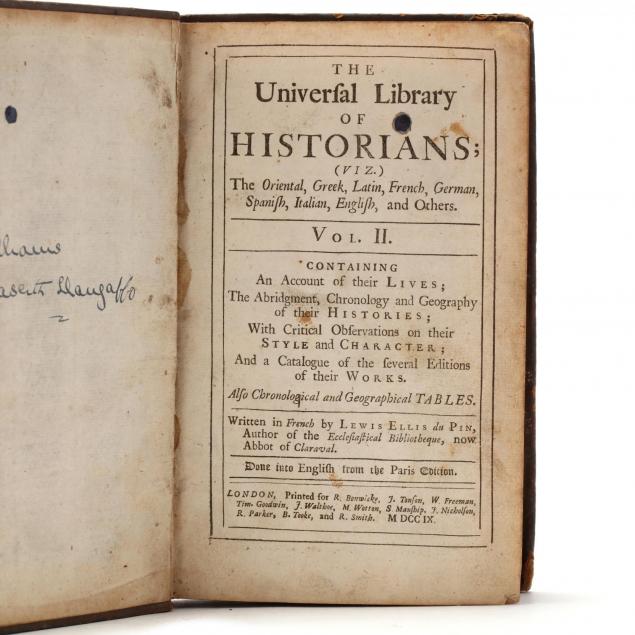 THE
Univerſal Library
OF
HISTORIANS;
(VIZ.)
The Oriental, Greek, Latin, French, German,
Spaniſh, Italian, Engliſh, and Others.
VOL. II.
CONTAINING
An Account of their LIVES;
The Abridgment, Chronology and Geography
of their HISTORIES;
With Critical Obſervations on their
STYLE and CHARACTER;
And a Catalogue of the ſeveral Editions
of their WORKS.
Alſo Chronological and Geographical TABLES.
Written in French by LEWIS ELLIS du PIN,
Author of the Eccleſiaſtical Bibliotheque, now
Abbot of Claraval.
Done into Engliſh from the Paris Edition.
LONDON, Printed for R. Bonwicke, J. Tonſon, W. Freeman,
Tim. Goodwin, J. Walthoe, M. Wotton, S. Manſhip, J. Nicholſon,
R. Parker, B. Tooke, and R. Smith. MDCCIX.